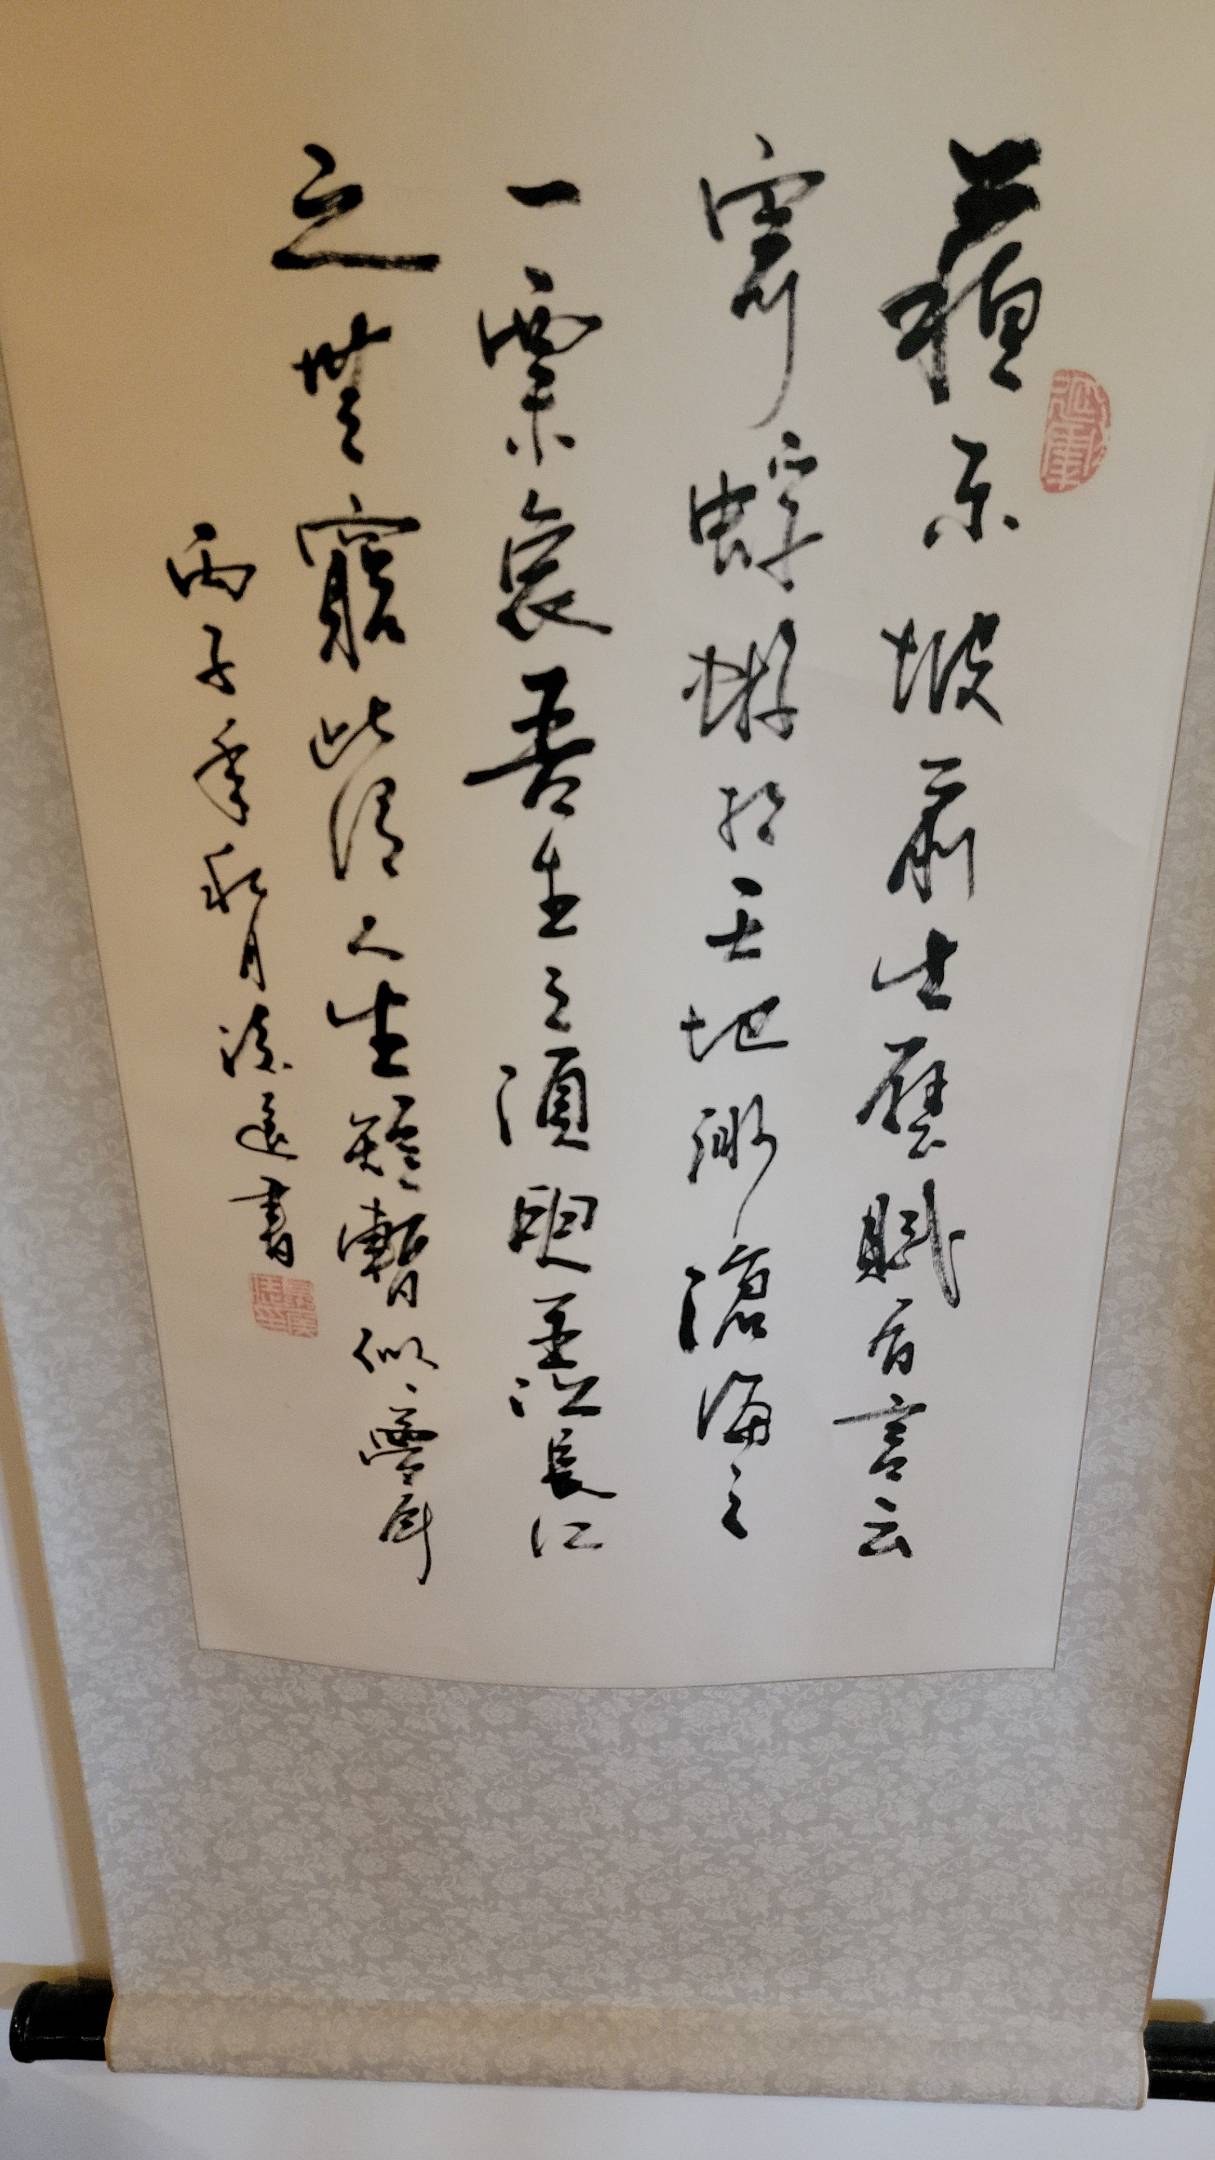 蘇東坡前赤壁賦有言云
寄蜉蝣於天地渺滄海之
一粟哀吾生之須臾羨長江
之無窮此謂人生短暫似靈耳
丙子年秋月遠書